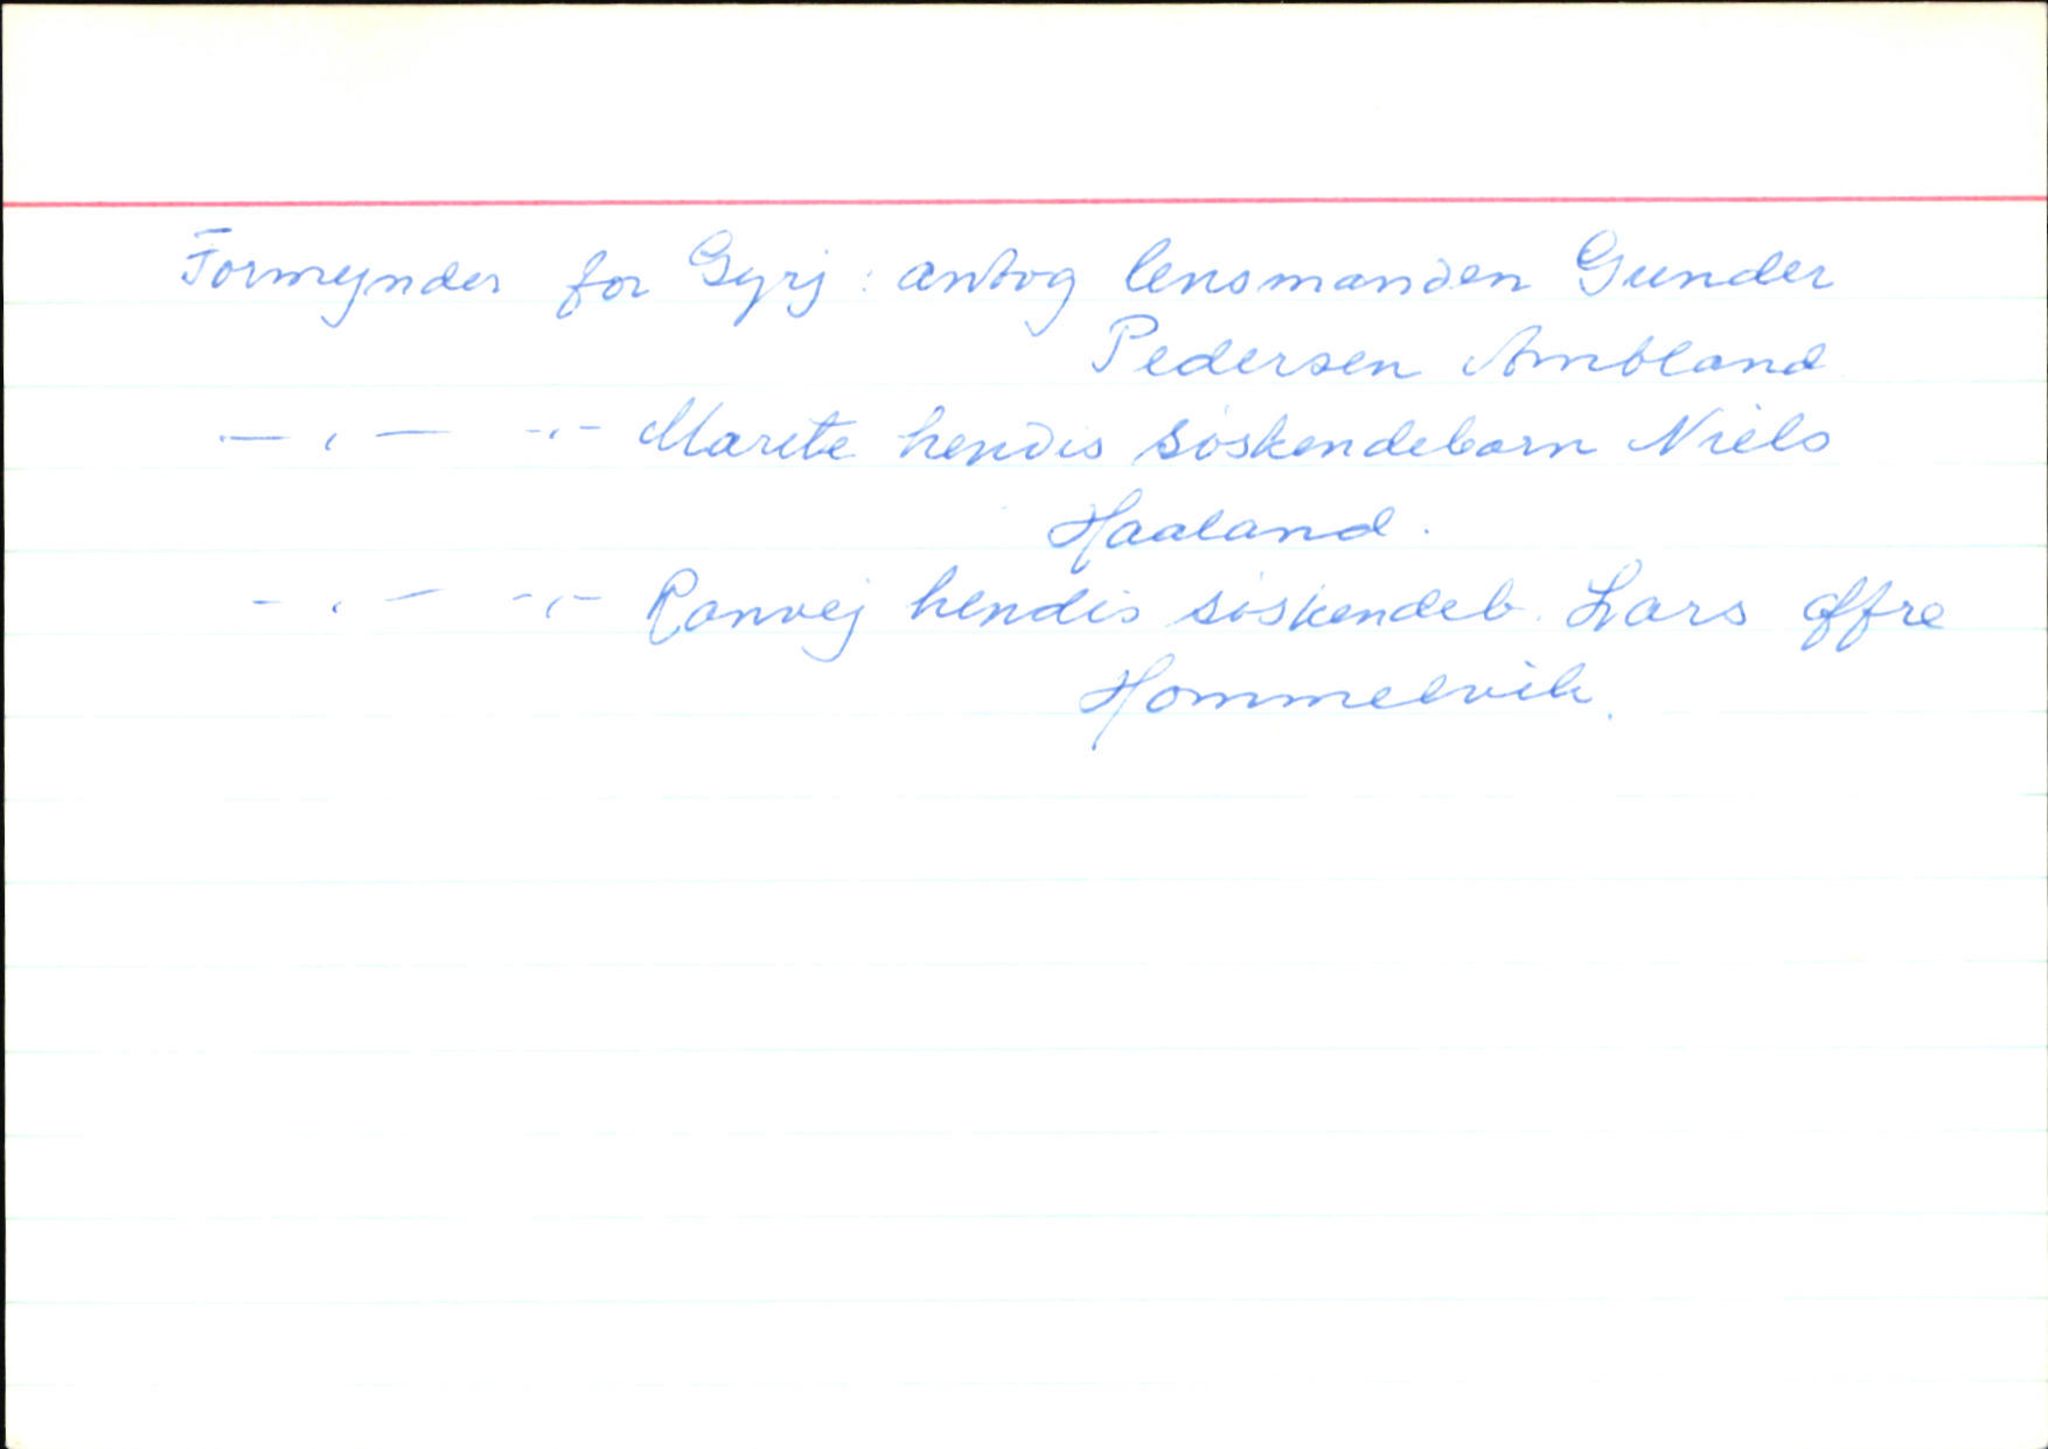 Formynder for Gyrj : antog lensmanden Gunder
Pedersen Ambland
— , — -,- Marite hendis søskendebarn Niels
Haaland.
- , — -,- Ranvej hendis søskendeb. Lars øffre
Hommelvik.